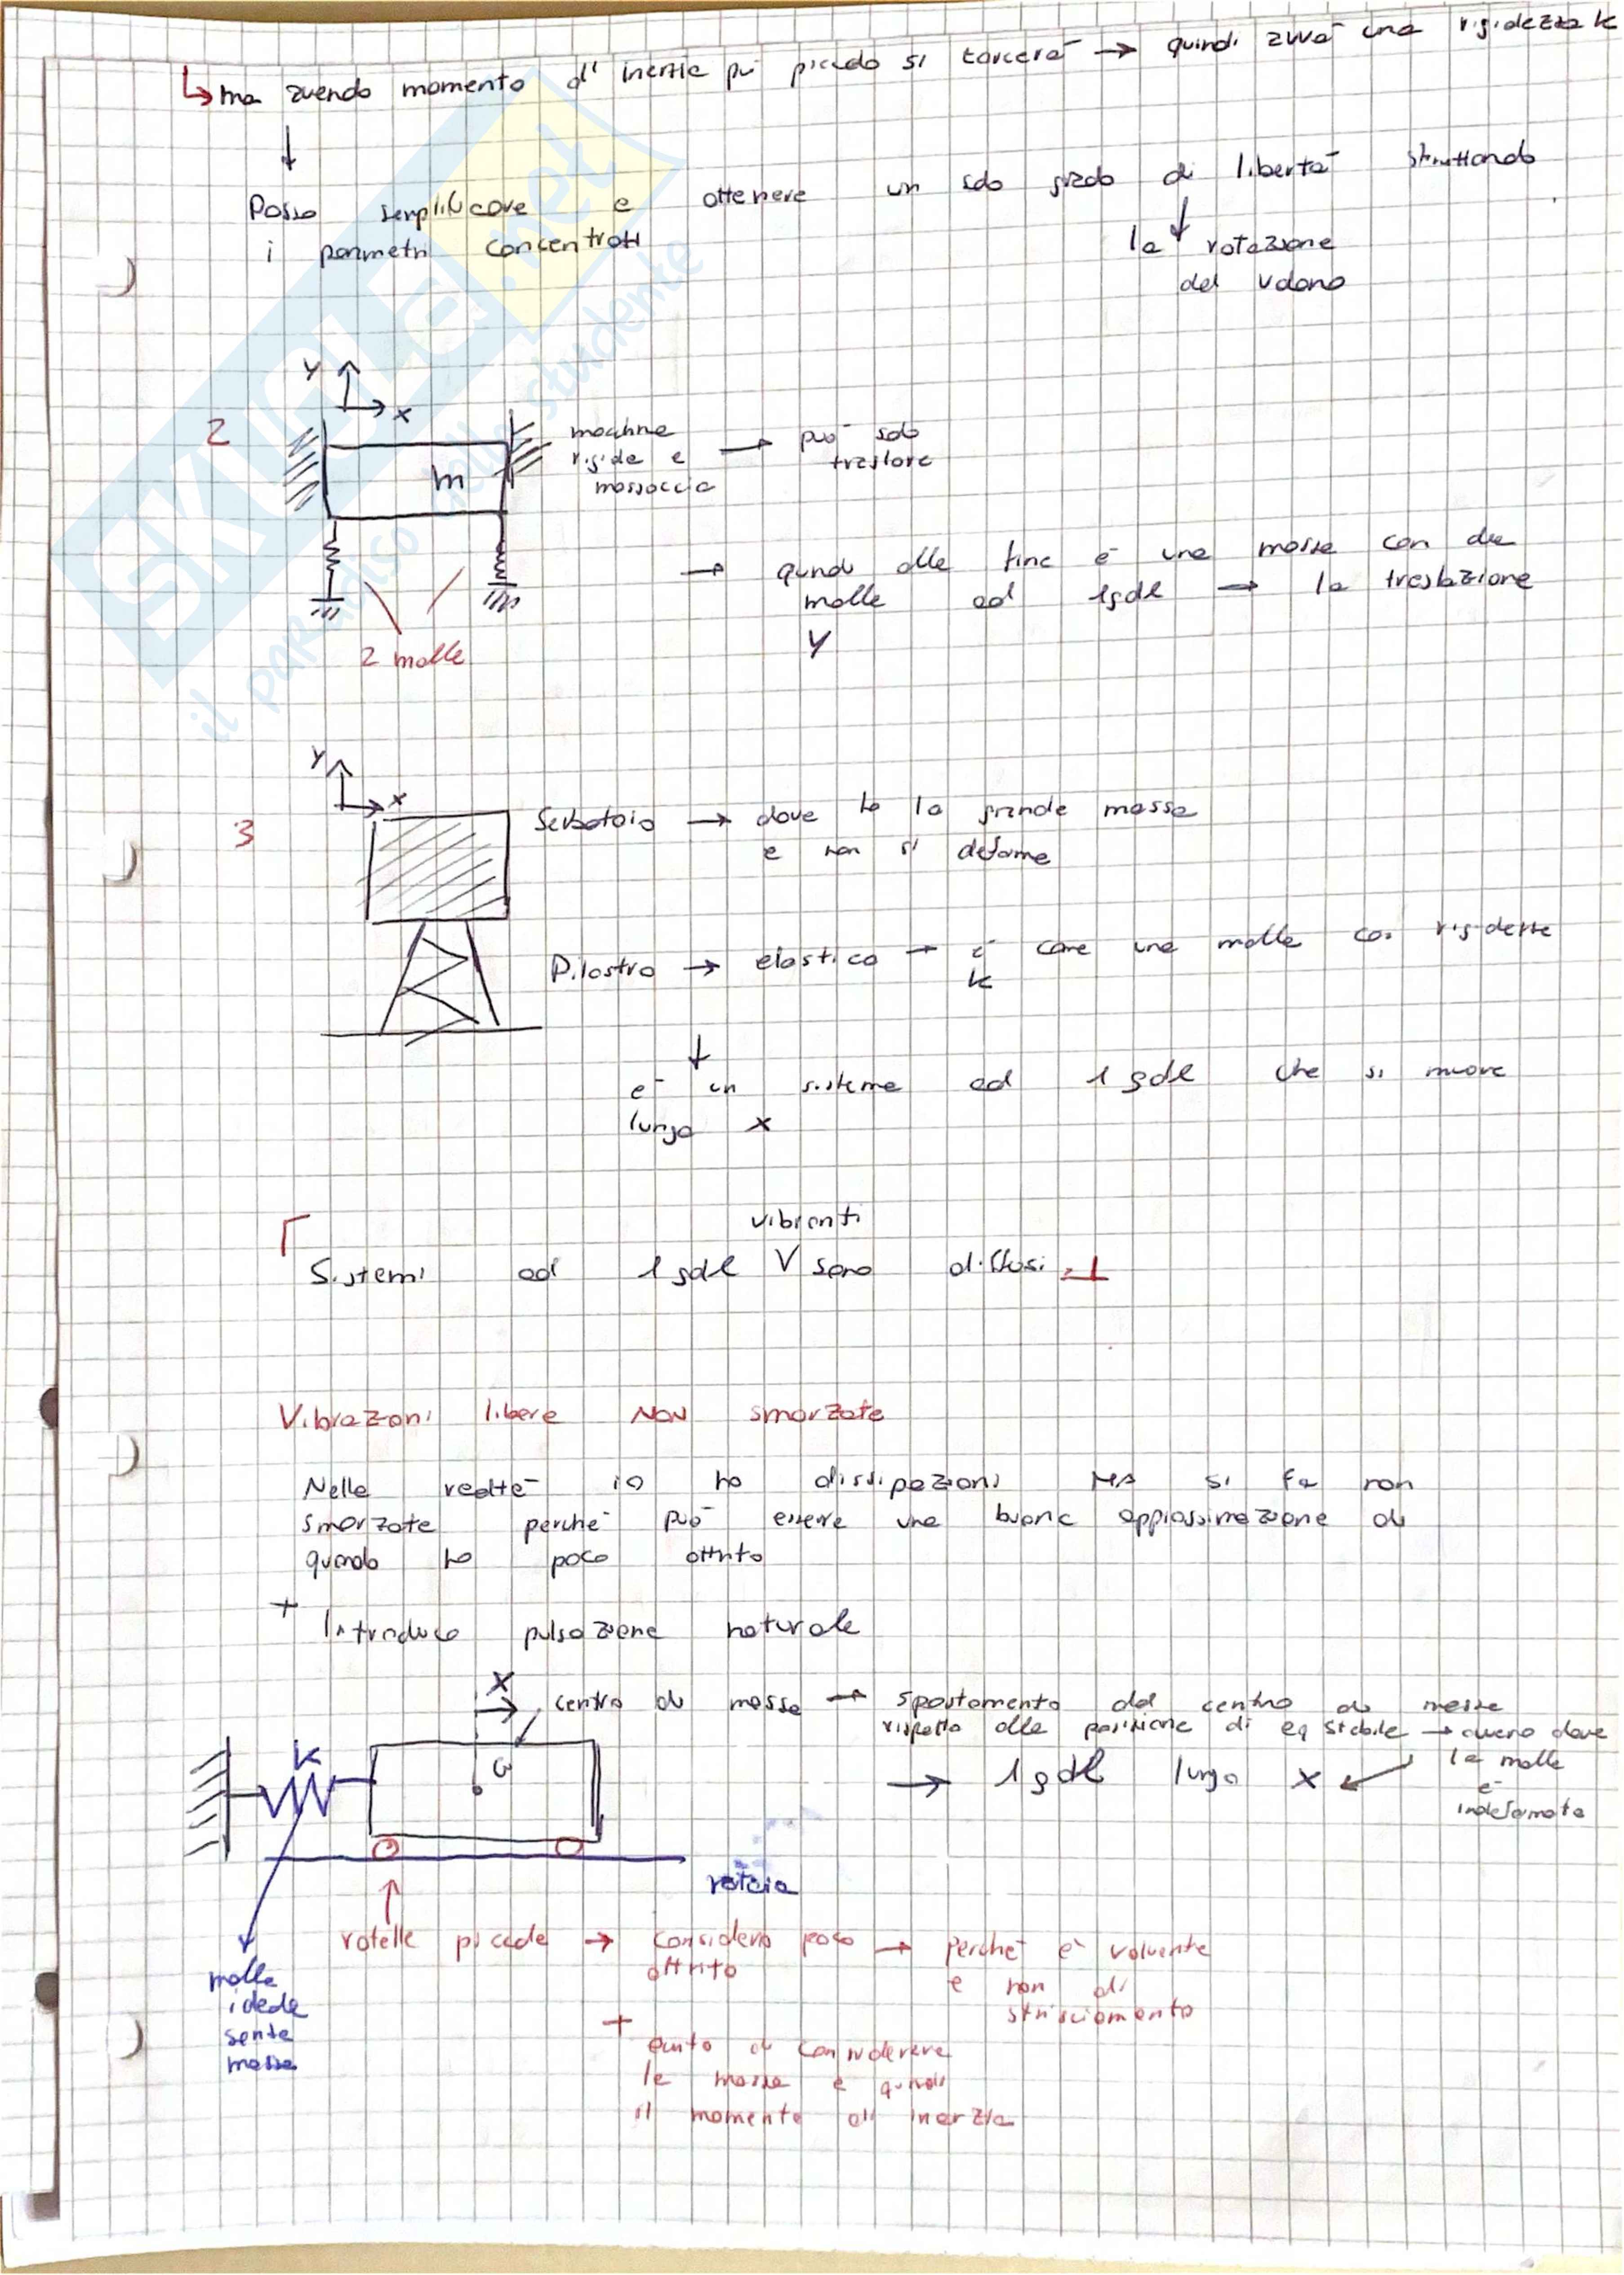 ↳ ma avendo momento d'inerzia più piccolo si torcerà → quindi avrà una rigidezza k
↓
Posso semplificare e ottenere un solo grado di libertà sfruttando
i parametri concentrati
↓
la rotazione
del volano
Y
x
2
m
macchina
rigida e
massiccia
→ può solo
traslare
→ quindi alla fine è una massa con due
molle ad 1gdl → la traslazione
Y
2 molle
Y
x
3
Serbatoio → dove ho la grande massa
e non si deforma
Pilastro → elastico → è come una molla con rigidezza
k
↓
è un sistema ad 1 gdl che si muove
lungo x
vibranti
Sistemi ad 1 gdl V sono diffusi
Vibrazioni libere NON smorzate
Nella realtà io ho dissipazioni MA si fa non
smorzate perché può essere una buona approssimazione di
quando ho poco attrito
+
Introduco pulsazione naturale
X
centro di massa → spostamento del centro di massa
rispetto alla posizione di eq stabile → ovvero dove
la molla
è
indeformata
→ 1 gdl lungo x
K
G
rotaia
rotelle piccole → considero poco
attrito
→ perché è volvente
e non di
strisciamento
molla
ideale
senza
massa
+
evito di considerare
la massa e quindi
il momento di inerzia
SKUOLA.net
il paradiso dello studente